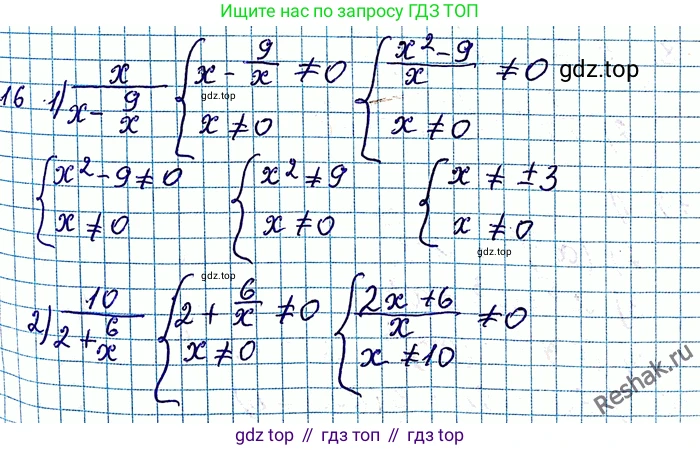 Ищите нас по запросу ГДЗ ТОП
16 1) x / (x - 9/x) { x - 9/x ≠ 0 { (x² - 9)/x ≠ 0 gdz.top
gdz.top
x ≠ 0 x ≠ 0
{ x² - 9 ≠ 0 { x² ≠ 9 { x ≠ ± 3
x ≠ 0 x ≠ 0 x ≠ 0
gdz.top
gdz.top
2) 10 / (2 + 6/x) { 2 + 6/x ≠ 0 { (2x + 6)/x ≠ 0
x ≠ 0 x ≠ 10
gdz.top
Reshak.ru
gdz.top // гдз топ // gdz.top